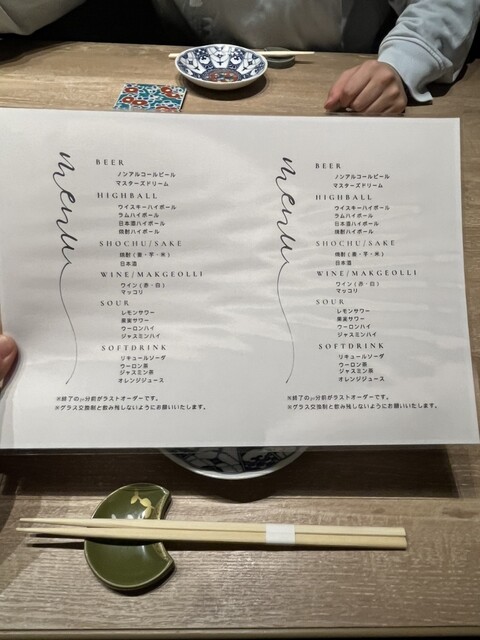 menu
BEER
ノンアルコールビール
マスターズドリーム
HIGHBALL
ウイスキーハイボール
ラムハイボール
日本酒ハイボール
焼酎ハイボール
SHOCHU/SAKE
焼酎(麦・芋・米)
日本酒
WINE/MAKGEOLLI
ワイン(赤・白)
マッコリ
SOUR
レモンサワー
果実サワー
ウーロンハイ
ジャスミンハイ
SOFTDRINK
リキュールソーダ
ウーロン茶
ジャスミン茶
オレンジジュース
※終了の30分前がラストオーダーです。
※グラス交換制と飲み残しないようにお願いいたします。
menu
BEER
ノンアルコールビール
マスターズドリーム
HIGHBALL
ウイスキーハイボール
ラムハイボール
日本酒ハイボール
焼酎ハイボール
SHOCHU/SAKE
焼酎(麦・芋・米)
日本酒
WINE/MAKGEOLLI
ワイン(赤・白)
マッコリ
SOUR
レモンサワー
果実サワー
ウーロンハイ
ジャスミンハイ
SOFTDRINK
リキュールソーダ
ウーロン茶
ジャスミン茶
オレンジジュース
※終了の30分前がラストオーダーです。
※グラス交換制と飲み残しないようにお願いいたします。